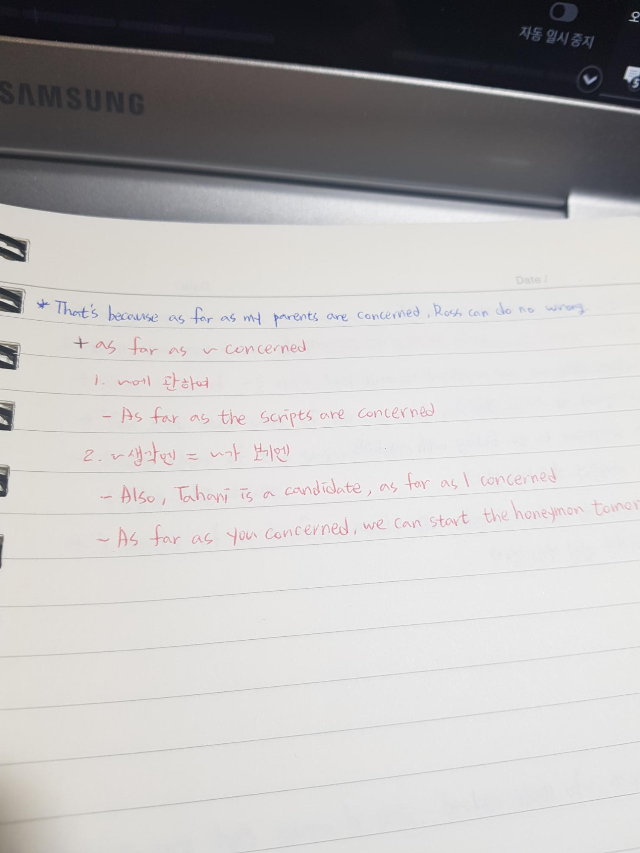 자동 일시 중지
SAMSUNG
Date /
* That's because as far as my parents are concerned, Ross can do no wrong
+ as far as ~ concerned
1. ~에 관하여
- As far as the scripts are concerned
2. ~생각엔 = ~가 보기엔
- Also, Tahani is a candidate, as far as I concerned
- As far as you concerned, we can start the honeymon tomor